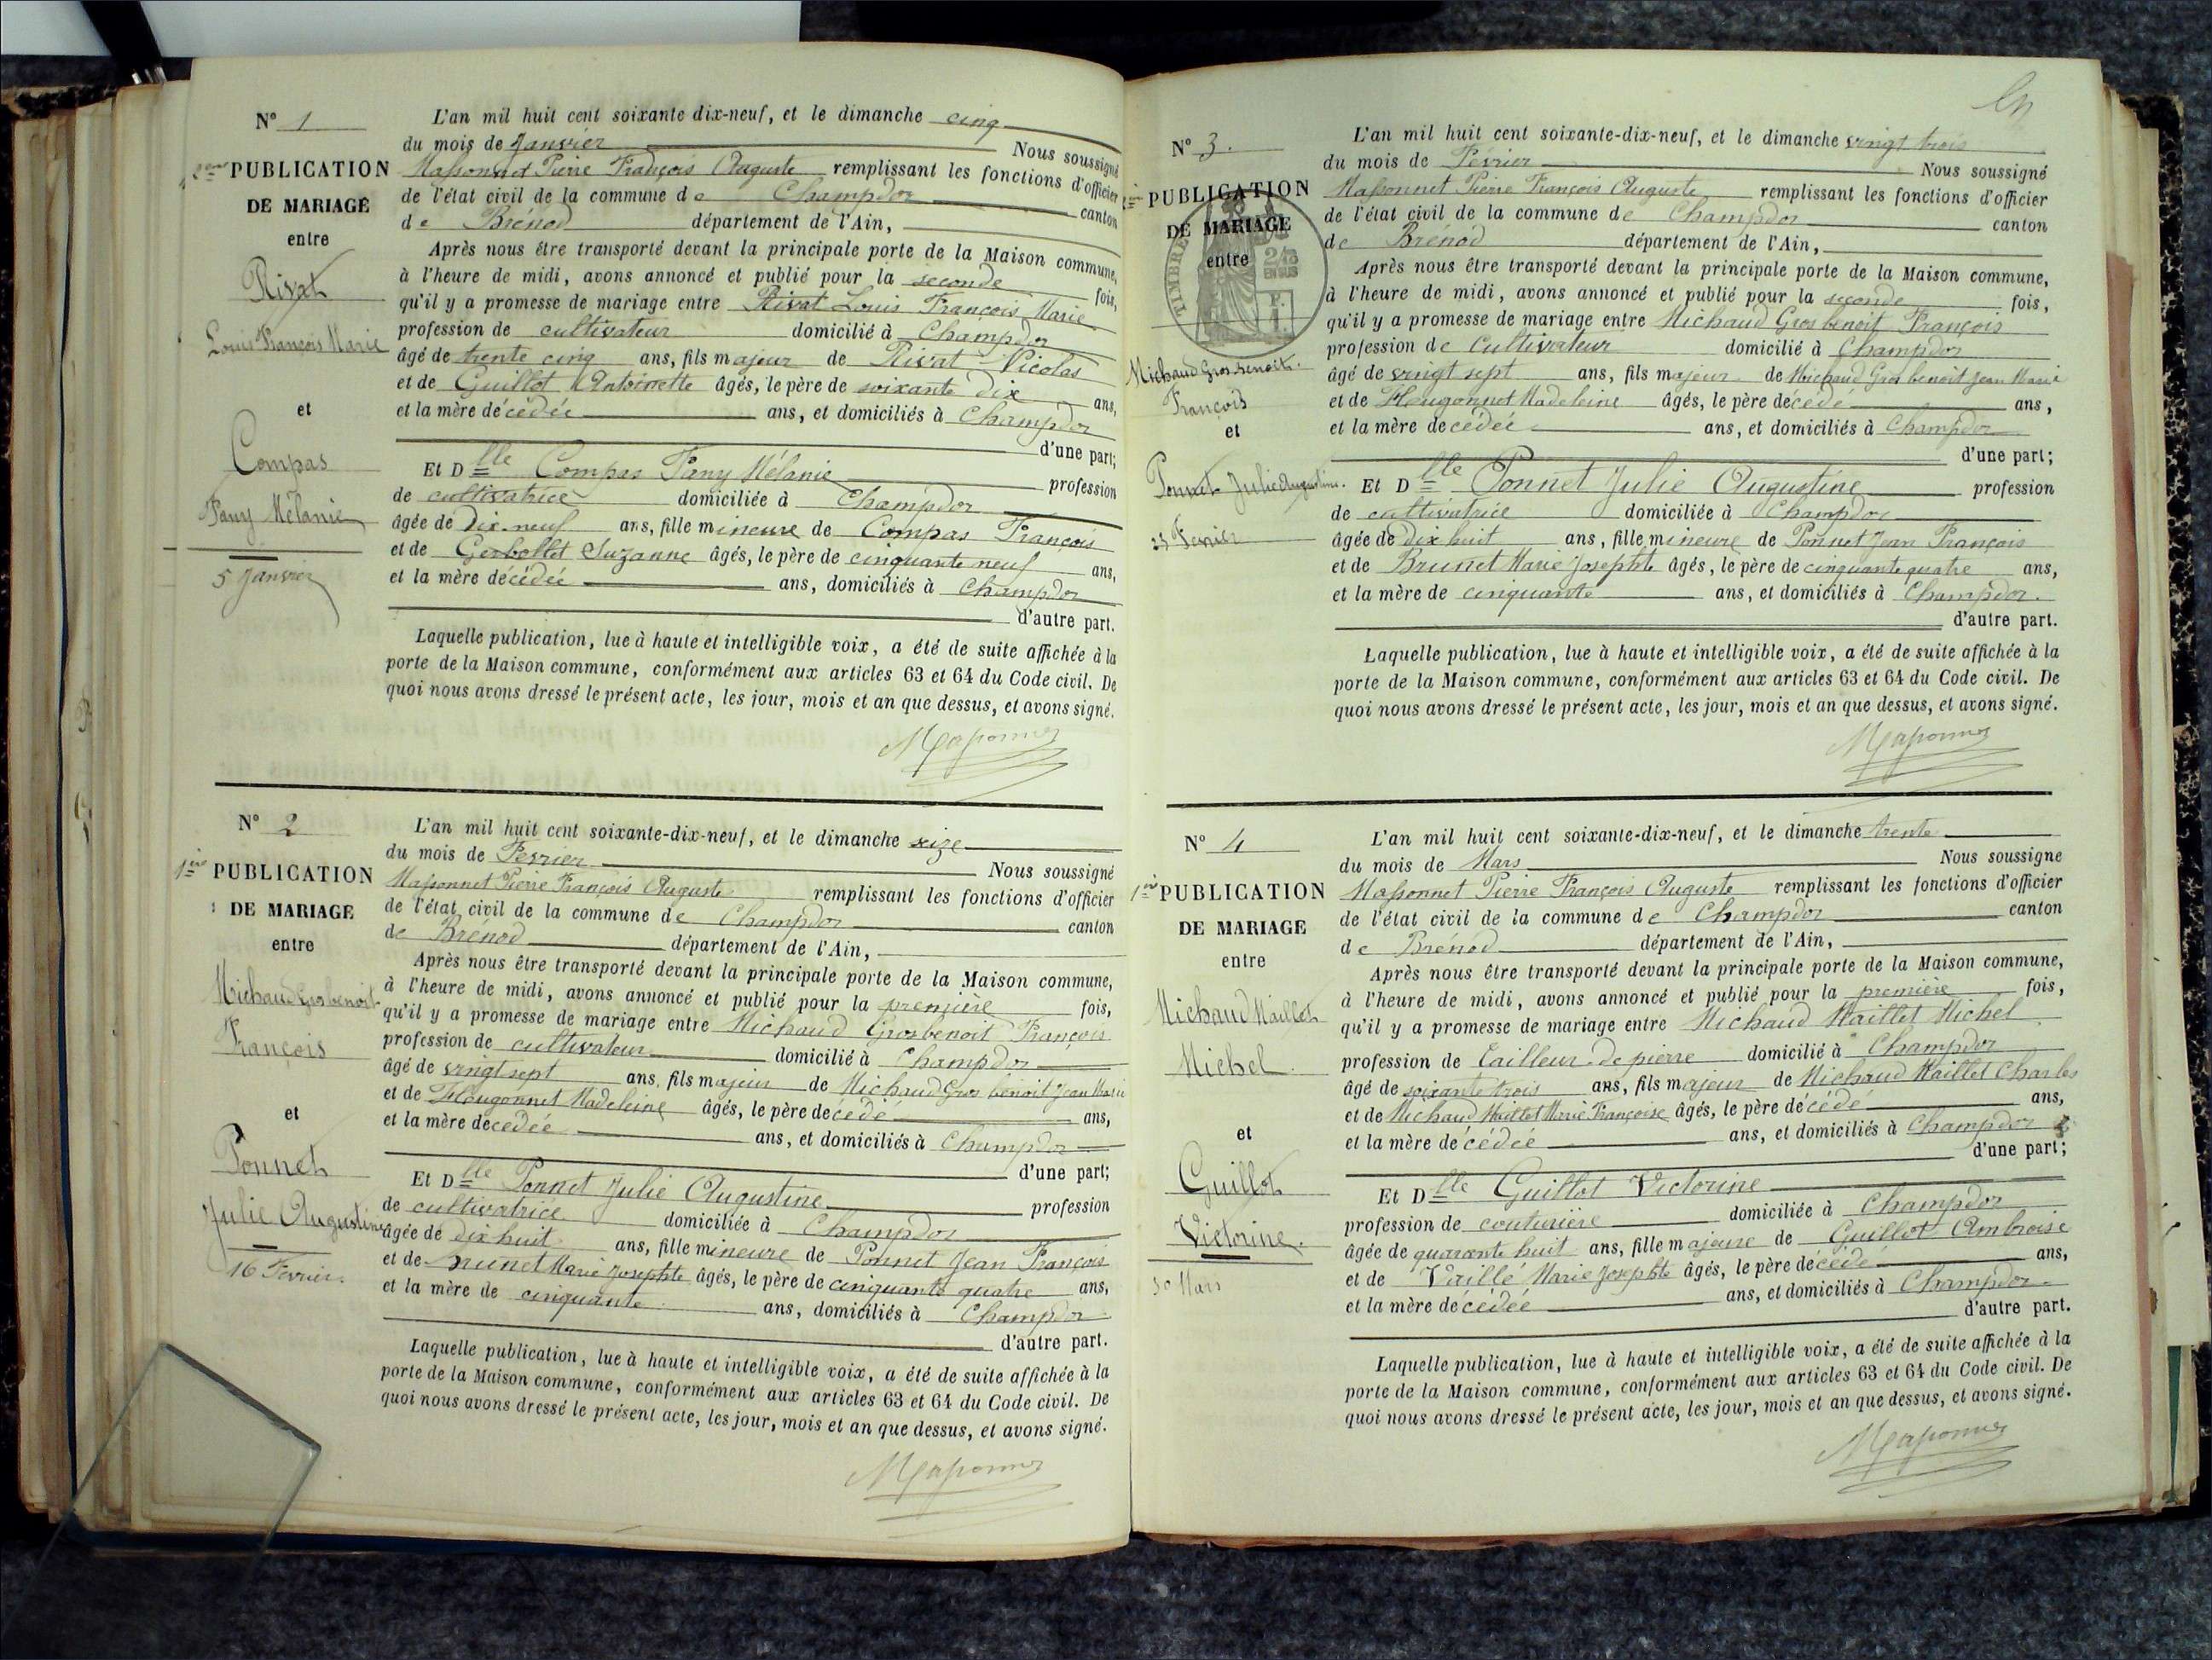 N° 1
2eme PUBLICATION
DE MARIAGE
entre
Rivat
Louis François Marie
et
Compas
Fany Mélanie
5 Janvier
L'an mil huit cent soixante dix-neuf, et le dimanche cinq
du mois de Janvier Nous soussigné
Massonnet Pierre François Auguste remplissant les fonctions d'officier
de l'état civil de la commune de Champdor canton
de Brénod département de l'Ain,
Après nous être transporté devant la principale porte de la Maison commune,
à l'heure de midi, avons annoncé et publié pour la seconde fois,
qu'il y a promesse de mariage entre Rivat Louis François Marie
profession de cultivateur domicilié à Champdor
âgé de trente cinq ans, fils majeur de Rivat Nicolas
et de Guillot Antoinette âgés, le père de soixante dix ans,
et la mère décédée ans, et domiciliés à Champdor
d'une part;
Et Dlle Compas Fany Mélanie profession
de cultivatrice domiciliée à Champdor
âgée de Dix-neuf ans, fille mineure de Compas François
et de Gerbollet Suzanne âgés, le père de cinquante neuf ans,
et la mère décédée ans, domiciliés à Champdor
d'autre part.
Laquelle publication, lue à haute et intelligible voix, a été de suite affichée à la
porte de la Maison commune, conformément aux articles 63 et 64 du Code civil. De
quoi nous avons dressé le présent acte, les jour, mois et an que dessus, et avons signé.
Massonnet
N° 2
1ère PUBLICATION
DE MARIAGE
entre
Michaud Grosbenoit
François
et
Ponnet
Julie Augustine
16 Fevrier.
L'an mil huit cent soixante-dix-neuf, et le dimanche seize
du mois de Fevrier Nous soussigné
Massonnet Pierre François Auguste remplissant les fonctions d'officier
de l'état civil de la commune de Champdor canton
de Brénod département de l'Ain,
Après nous être transporté devant la principale porte de la Maison commune,
à l'heure de midi, avons annoncé et publié pour la première fois,
qu'il y a promesse de mariage entre Michaud Grosbenoit François
profession de cultivateur domicilié à Champdor
âgé de vingt sept ans, fils majeur de Michaud Gros benoit Jean Marie
et de Hougonnet Madeleine âgés, le père decédé ans,
et la mère decedée ans, et domiciliés à Champdor
d'une part;
Et Dlle Ponnet Julie Augustine profession
de cultivatrice domiciliée à Champdor
âgée de dix huit ans, fille mineure de Ponnet Jean François
et de Brunet Marie Josephte âgés, le père de cinquante quatre ans,
et la mère de cinquante ans, domiciliés à Champdor
d'autre part.
Laquelle publication, lue à haute et intelligible voix, a été de suite affichée à la
porte de la Maison commune, conformément aux articles 63 et 64 du Code civil. De
quoi nous avons dressé le présent acte, les jour, mois et an que dessus, et avons signé.
Massonnet
N° 3.
PUBLICATION
DE MARIAGE
entre
TIMBRE
2/10
EN SUS
Michaud Gros benoit.
François
et
Ponnet Julie Augustine.
23 Fevrier
L'an mil huit cent soixante-dix-neuf, et le dimanche vingt trois
du mois de Février Nous soussigné
Massonnet Pierre François Auguste remplissant les fonctions d'officier
de l'état civil de la commune de Champdor canton
de Brénod département de l'Ain,
Après nous être transporté devant la principale porte de la Maison commune,
à l'heure de midi, avons annoncé et publié pour la seconde fois,
qu'il y a promesse de mariage entre Michaud Gros benoit François
profession de cultivateur domicilié à Champdor
âgé de vingt sept ans, fils majeur de Michaud Gros benoit Jean Marie
et de Hougonnet Madeleine âgés, le père decédé ans,
et la mère decédée ans, et domiciliés à Champdor
d'une part;
Et Dlle Ponnet Julie Augustine profession
de cultivatrice domiciliée à Champdor
âgée de dix huit ans, fille mineure de Ponnet Jean François
et de Brunet Marie Josephte âgés, le père de cinquante quatre ans,
et la mère de cinquante ans, et domiciliés à Champdor.
d'autre part.
Laquelle publication, lue à haute et intelligible voix, a été de suite affichée à la
porte de la Maison commune, conformément aux articles 63 et 64 du Code civil. De
quoi nous avons dressé le présent acte, les jour, mois et an que dessus, et avons signé.
Massonnet
N° 4
1ère PUBLICATION
DE MARIAGE
entre
Michaud Maillet
Michel.
et
Guillot
Victorine.
30 Mars
L'an mil huit cent soixante-dix-neuf, et le dimanche trente
du mois de Mars Nous soussigné
Massonnet Pierre François Auguste remplissant les fonctions d'officier
de l'état civil de la commune de Champdor canton
de Brénod département de l'Ain,
Après nous être transporté devant la principale porte de la Maison commune,
à l'heure de midi, avons annoncé et publié pour la première fois,
qu'il y a promesse de mariage entre Michaud Maillet Michel
profession de tailleur de pierre domicilié à Champdor
âgé de soixante trois ans, fils majeur de Michaud Maillet Charles
et de Michaud Maillet Marie Françoise âgés, le père décédé ans,
et la mère décédée ans, et domiciliés à Champdor
d'une part;
Et Dlle Guillot Victorine
profession de couturière domiciliée à Champdor
âgée de quarante huit ans, fille majeure de Guillot Ambroise
et de Vaillé Marie Josephte âgés, le père décédé ans,
et la mère décédée ans, et domiciliés à Champdor
d'autre part.
Laquelle publication, lue à haute et intelligible voix, a été de suite affichée à la
porte de la Maison commune, conformément aux articles 63 et 64 du Code civil. De
quoi nous avons dressé le présent acte, les jour, mois et an que dessus, et avons signé.
Massonnet